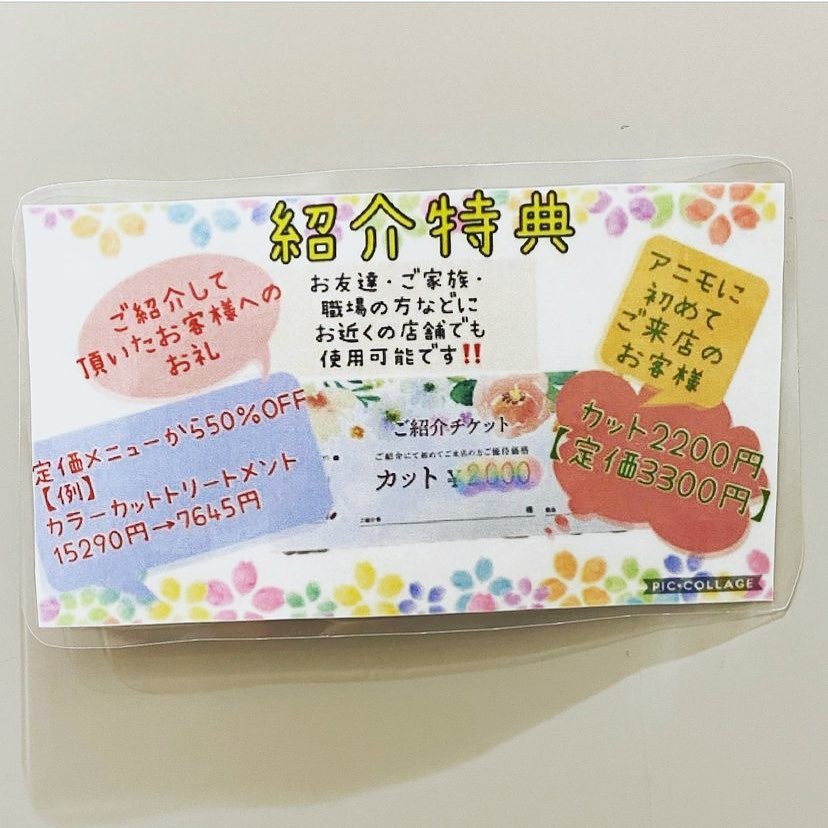 紹介特典
ご紹介して
頂いたお客様への
お礼
お友達・ご家族・
職場の方などに
お近くの店舗でも
使用可能です‼️
アニモに
初めて
ご来店の
お客様
定価メニューから50%OFF
【例】
カラーカットトリートメント
15290円→7645円
ご紹介チケット
ご紹介にて初めてご来店の方ご優待価格
カット ¥2000
ご紹介者
様
カット2200円
【定価3300円】
PIC•COLLAGE